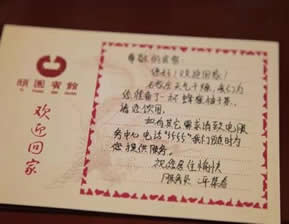 颐园宾馆
欢迎回家
尊敬的宾客:
您好!欢迎回家!
天气干燥,我们为
您准备了一杯蜂蜜柚子茶,
请您饮用。
如有其它需求请致电服
务中心电话"5555"我们随时为
您提供服务。
祝您居住愉快
服务员